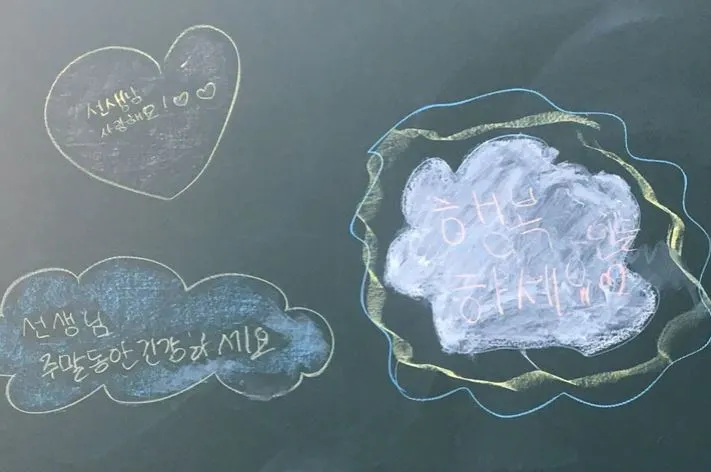 선생님
사랑해요! ♡♡
선생님
주말동안 건강하세요
행복
하세요